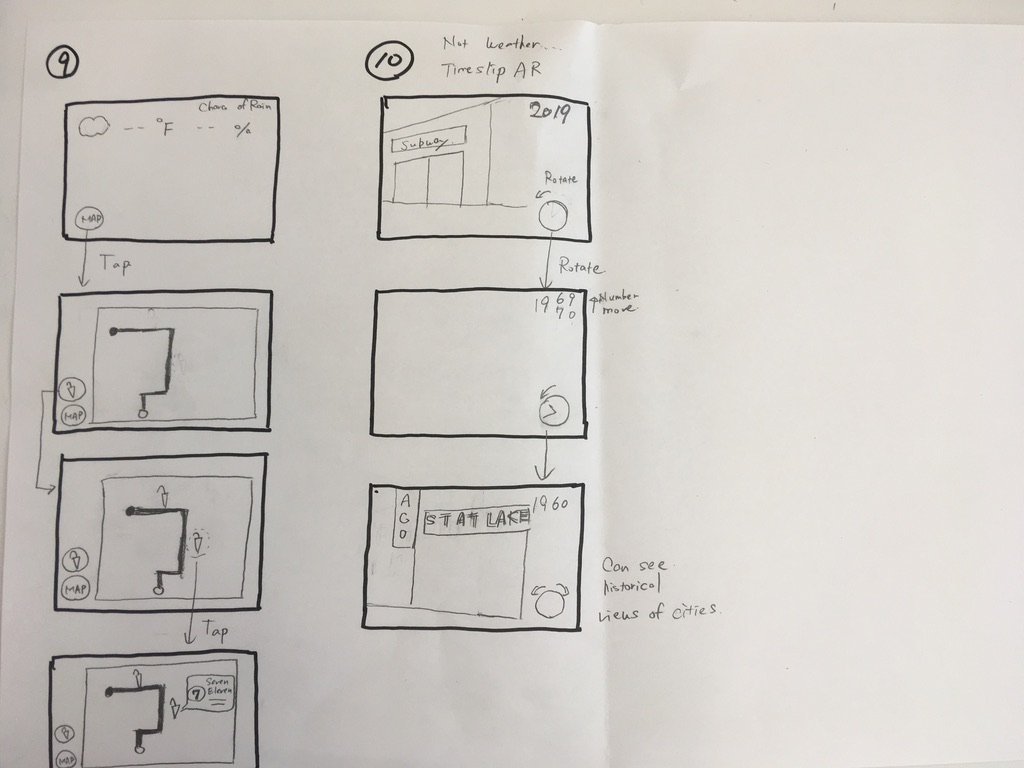 9
Chance of Rain
-- °F -- %
MAP
Tap
MAP
MAP
Tap
7 Seven
Eleven
MAP
10
Not weather...
Timeslip AR
2019
Subway
Rotate
Rotate
1969
70
Number
move
AGO
STAT LAKE
1960
Can see
historical
views of cities.